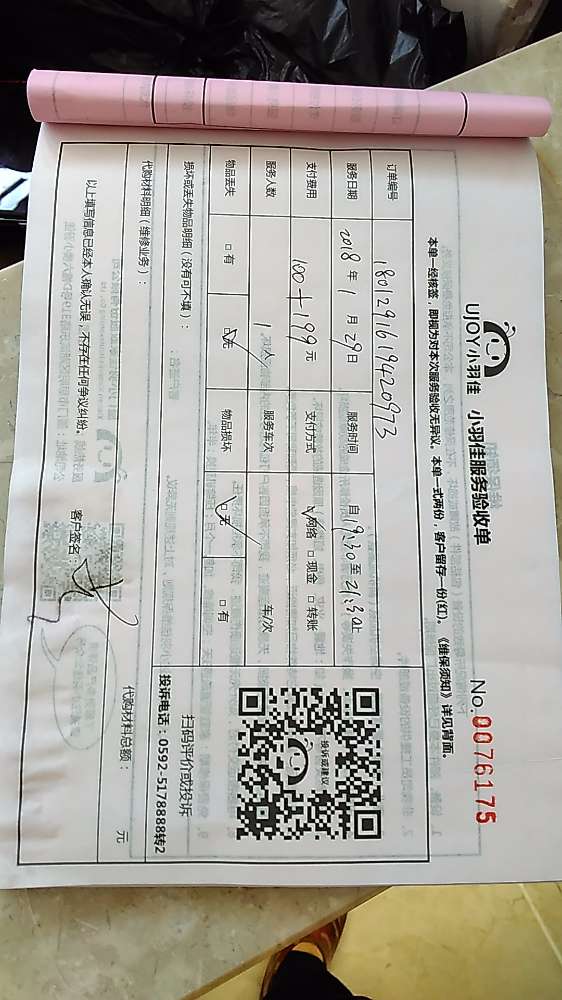 UJOY小羽佳 小羽佳服务验收单 No.0076175
本单一经核签，即视为对本次服务验收无异议。本单一式两份，客户留存一份(红)。《维保须知》详见背面。
订单编号 1801291619420973
服务日期 2018 年 1 月 29 日 服务时间 自 19:30 至 21:30 止
支付费用 100+199 元 支付方式 ☑网络 □现金 □转账
服务人数 1 人 服务车次 车/次
物品丢失 □有 ☑无 物品损坏 ☑无 □有
损坏或丢失物品明细（没有可不填）：
投诉或建议
扫码评价或投诉
投诉电话：0592-5178888转2
代购材料明细（维修业务）： 代购材料总额： 元
以上填写信息已经本人确认无误，不存在任何争议纠纷。 客户签名：